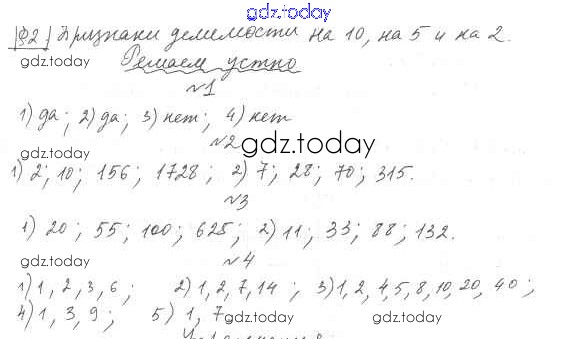 gdz.today
§2. Признаки делимости на 10, на 5 и на 2.
gdz.today
Решаем устно
№1
1) да; 2) да; 3) нет; 4) нет
№2
gdz.today
gdz.today
1) 2; 10; 156; 1728; 2) 7; 28; 70; 315.
№3
1) 20; 55; 100; 625; 2) 11; 33; 88; 132.
gdz.today
№4
1) 1, 2, 3, 6; 2) 1, 2, 7, 14; 3) 1, 2, 4, 5, 8, 10, 20, 40;
4) 1, 3, 9; 5) 1, 7
gdz.today gdz.today